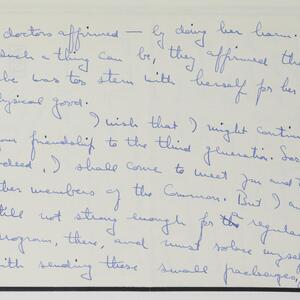 doctors affirmed — by doing her harm.
such a thing can be, they affirmed tha
she was too stern with herself for her
physical good.
I wish that I might contin
our friendship to the third generation. So
deed, I shall come to meet you and t
ther members of the Common. But I am
till not strong enough for the regular
rogram, there, and must solace myself
with sending these small packages,